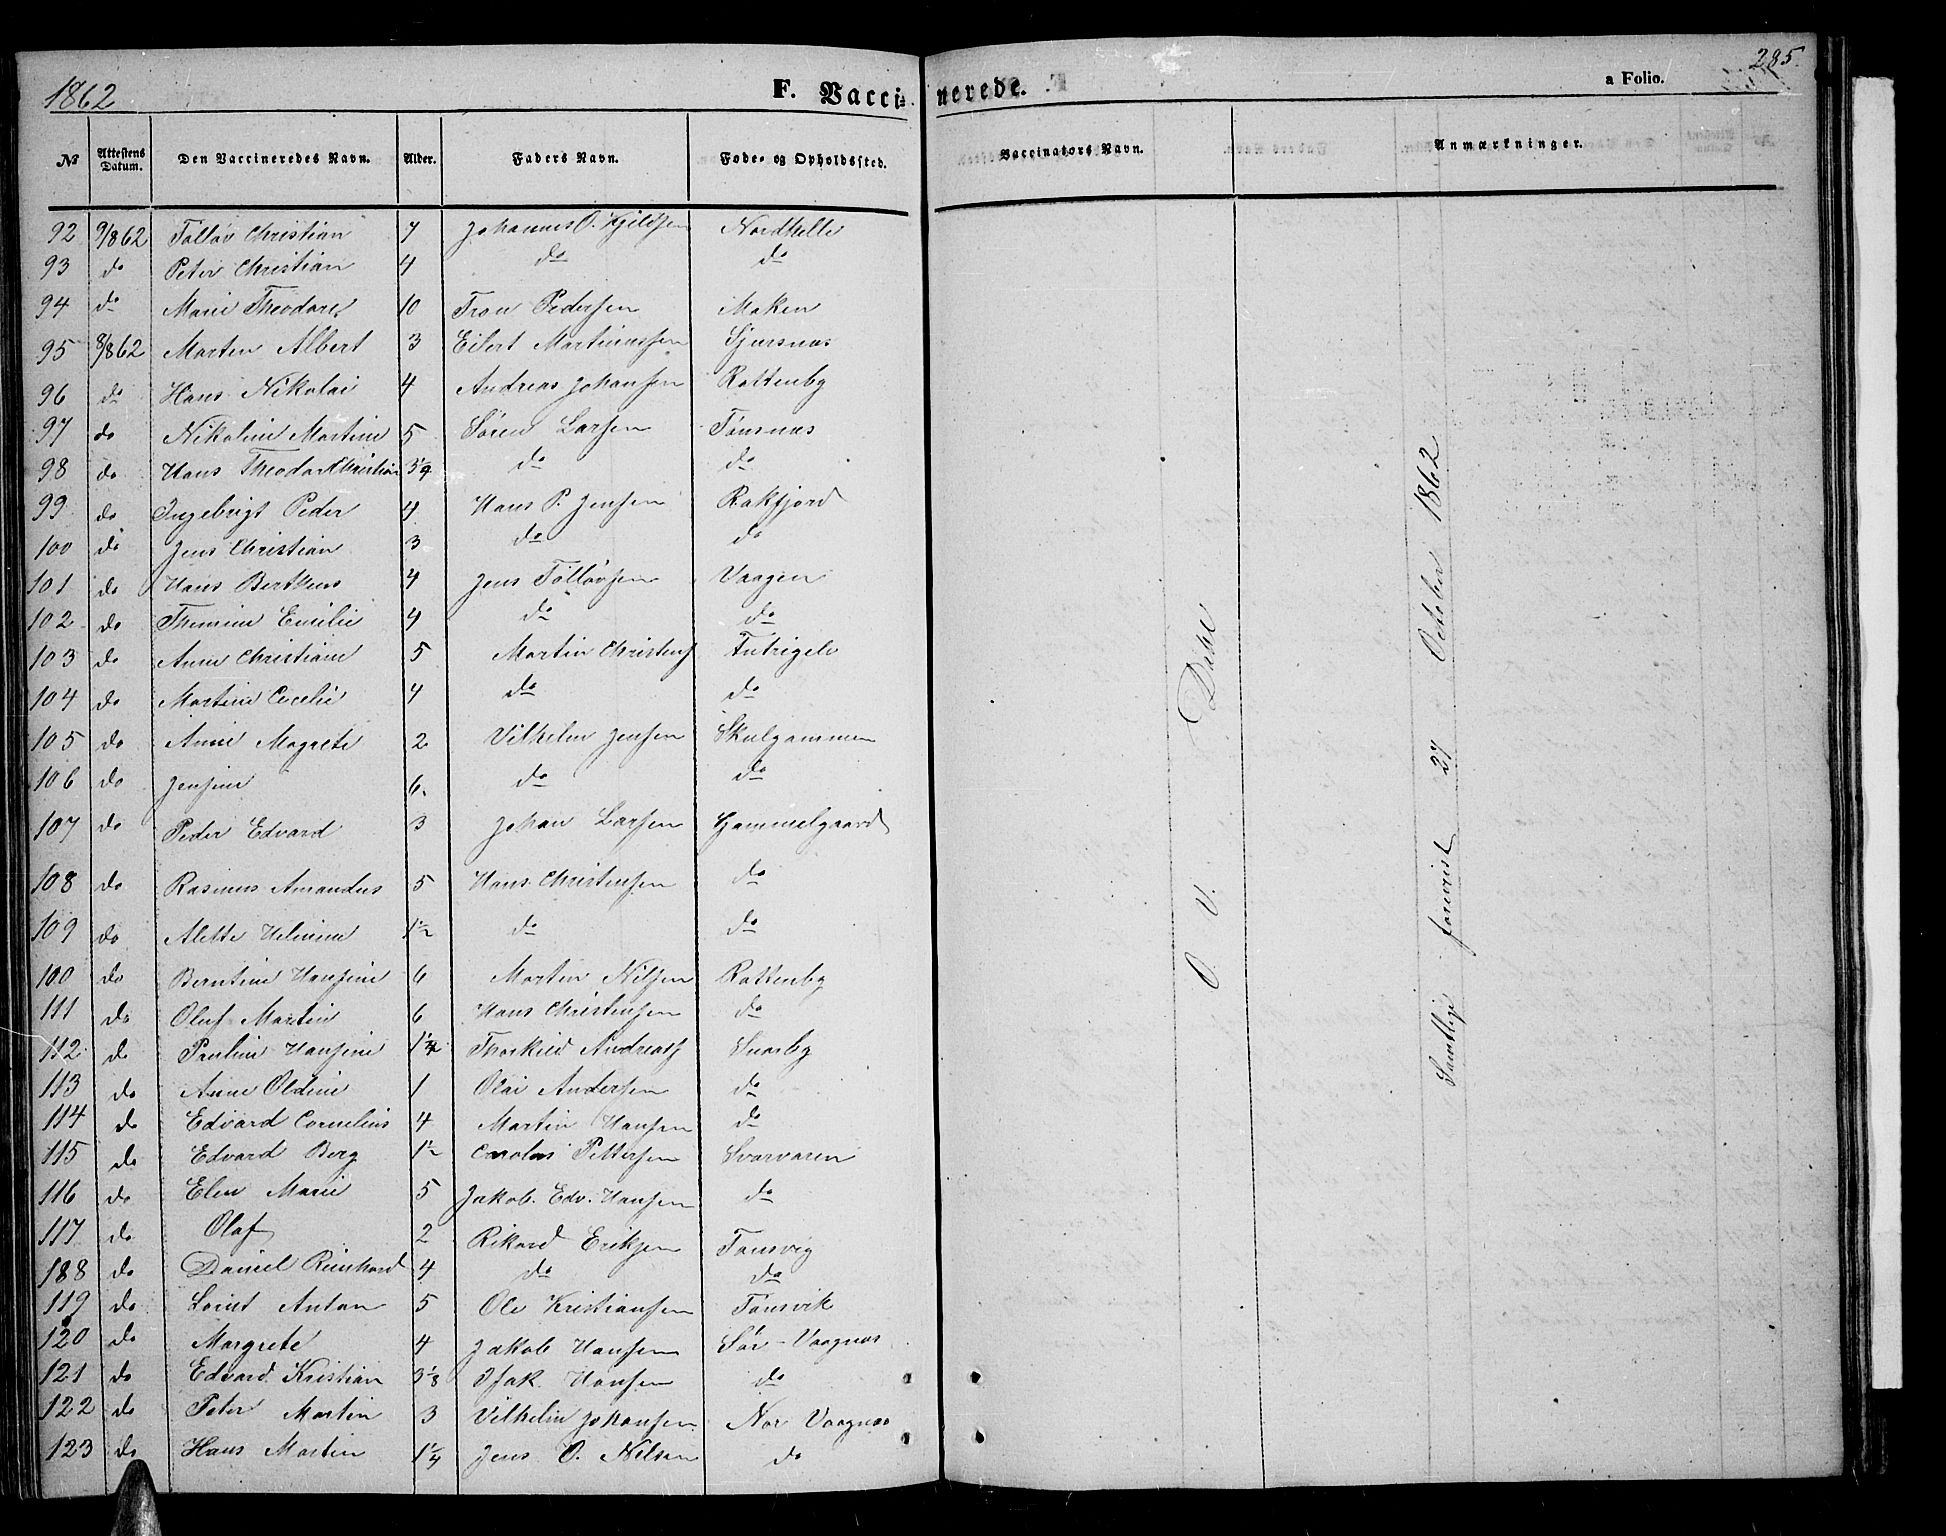 1862 F. Vaccinerede. a Folio. 285
№ Attestens Datum. Den Vaccineredes Navn. Alder. Faders Navn. Føde- og Opholdssted. Vaccinators Navn. Anmærkninger.
92 9/862 Tolløv Christian 7 Johannes O. Kjeldsen Nordhelle
93 do Peter Christian 4 do do
94 do Marie Theodore 10 Tron Pedersen Moken
95 8/862 Morten Albert 3 Eilert Martinussen Sjursnæs
96 do Hans Nikolai 4 Andreas Johansen Rottenby
97 do Nikoline Martine 5 Søren Larsen Tønsnæs
98 do Hans Theodor Christian 3 do do
99 do Ingebrigt Peder 4 Hans P. Jensen Rakfjord
100 do Jens Christian 3 do do
101 do Hans Bertheus 4 Jens Tolløvsen Vaagen
102 do Emilie 4 do do
103 do Anne Christiane 5 Martin Christens Futrigelv
104 do Martine Cecelie 4 do do
105 do Anne Magrete 2 Vilhelm Jensen Skulgammen
106 do Jensine 6. do do
107 do Peder Edvard 3 Johan Larsen Gammelgaard
108 do Rasmus Amandus 5 Hans Christensen do
109 do Alette Helmine 1½ do do
100 do Berntine Hansine 6 Morten Nilsen Rottenby
111 do Oluf Martin 6 Hans Christensen do
112 do Pauline Hansine 1½ Thorkild Andreass Snarby
113 do Anne Oldine 1 Olai Andersen do
114 do Edvard Cornelius 4 Martin Hansen do
115 do Edvard Berg 1½ Carolus Pettersen Svarvaren
116 do Elen Marie 5 Jakob. Edv. Hansen do
117 do Olaf 2 Rikard Eriksen Tonsvig
188 do Daniel Reinhard 4 do do
119 do Anton 5 Ole Kristiansen Tønsvik
120 do Margrete 4 Jakob Hansen Sør-Vaagnæs
121 do Edvard Kristian 3⅛ Isak Hansen do
122 do Peter Martin 3 Vilhelm Johansen Nor Vaagnæs
123 do Hans Martin 1¼ Jens O. Nilsen do
O. V. Dahl
Samtlige forevist 27 October 1862